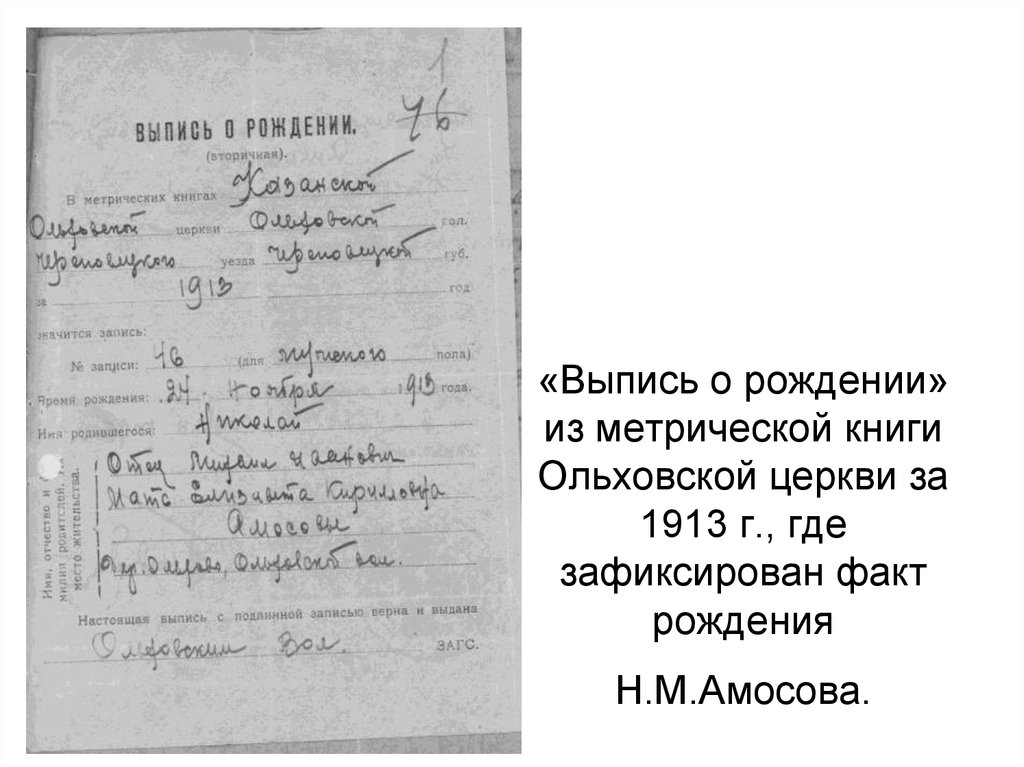 1
76
ВЫПИСЬ О РОЖДЕНИИ.
(вторичная).
В метрических книгах Казанской
Ольховской церкви Ольховской вол.
Череповецкого уезда Череповецкой губ.
за 1913 год
значится запись:
№ записи: 46 (для мужского пола)
Время рождения: 24. Ноября 1913 года.
Имя родившегося: Николай
Имя, отчество и
милия родителей,
место жительства.
Отец Михаил
Мать Елизавета Кирилловна
Амосовы
дер. Ольхово, Ольховской вол.
Настоящая выпись с подлинной записью верна и выдана
Ольховским Вол. ЗАГС.
«Выпись о рождении»
из метрической книги
Ольховской церкви за
1913 г., где
зафиксирован факт
рождения
Н.М.Амосова.